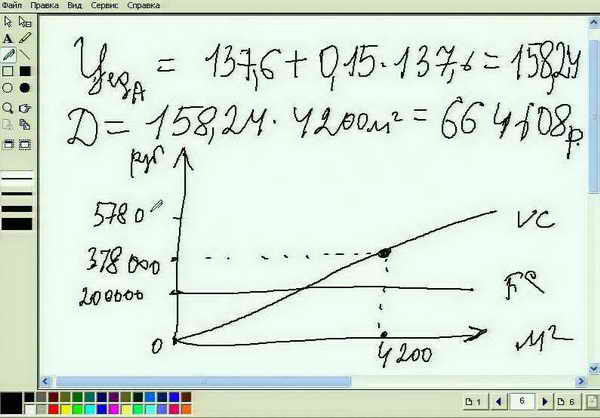 Файл Правка Вид Сервис Справка
Цед.А = 137,6 + 0,15 · 137,6 = 158,24
Д = 158,24 · 4200м² = 664608р.
руб
5780
VC
378000
200000
FC
0
4200
м²
1
6
6